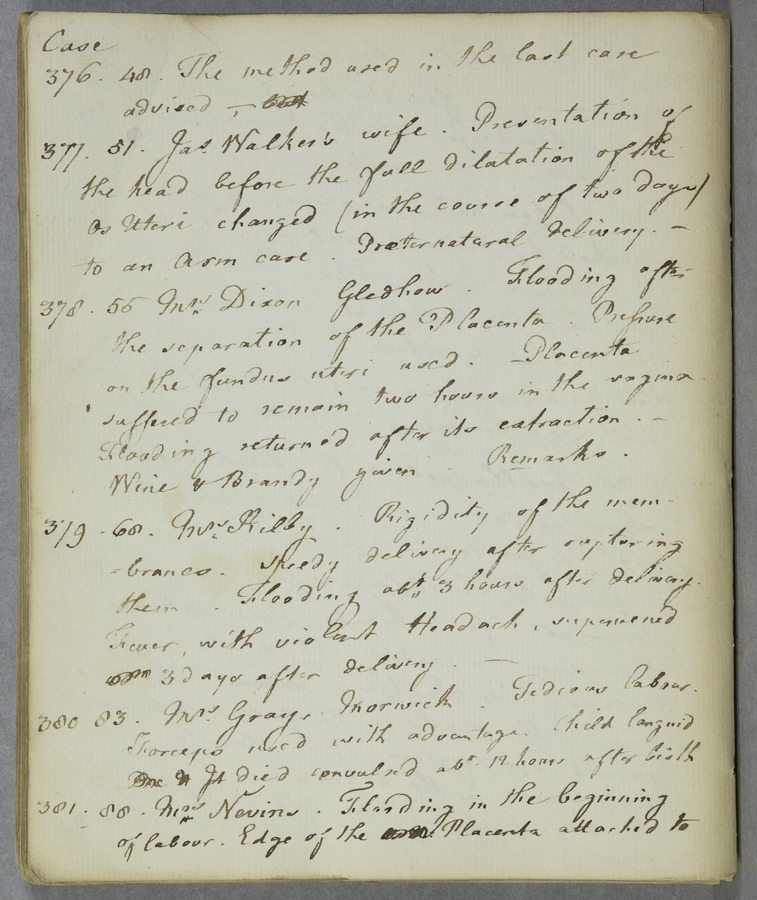 Case
376. 48. The method used in the last case
advised —
377. 51. Jas. Walker's wife. Presentation of
the head before the full dilatation of the
Os Uteri changed (in the course of two days)
to an Arm case. Præternatural delivery. —
378. 55 Mrs. Dixon Gledhow. Flooding after
the separation of the Placenta. Pressure
on the fundus uteri used. — Placenta
suffered to remain two hours in the vagina.
Flooding returned after its extraction. —
Wine & Brandy given. Remarks.
379. 68. Mrs. Kilby. Rigidity of the mem-
-branes. Speedy delivery after rupturing
them. Flooding abt. 3 hours after delivery.
Fever, with violent Headach, supervened
3 days after delivery. —
380 83. Mrs. Grays Morwick. Tedious labour.
Forceps used with advantage. Child languid
It died convulsed abt. 12 hours after birth
381. 88. Mrs. Nevins. Flooding in the beginning
of labour. Edge of the Placenta attached to